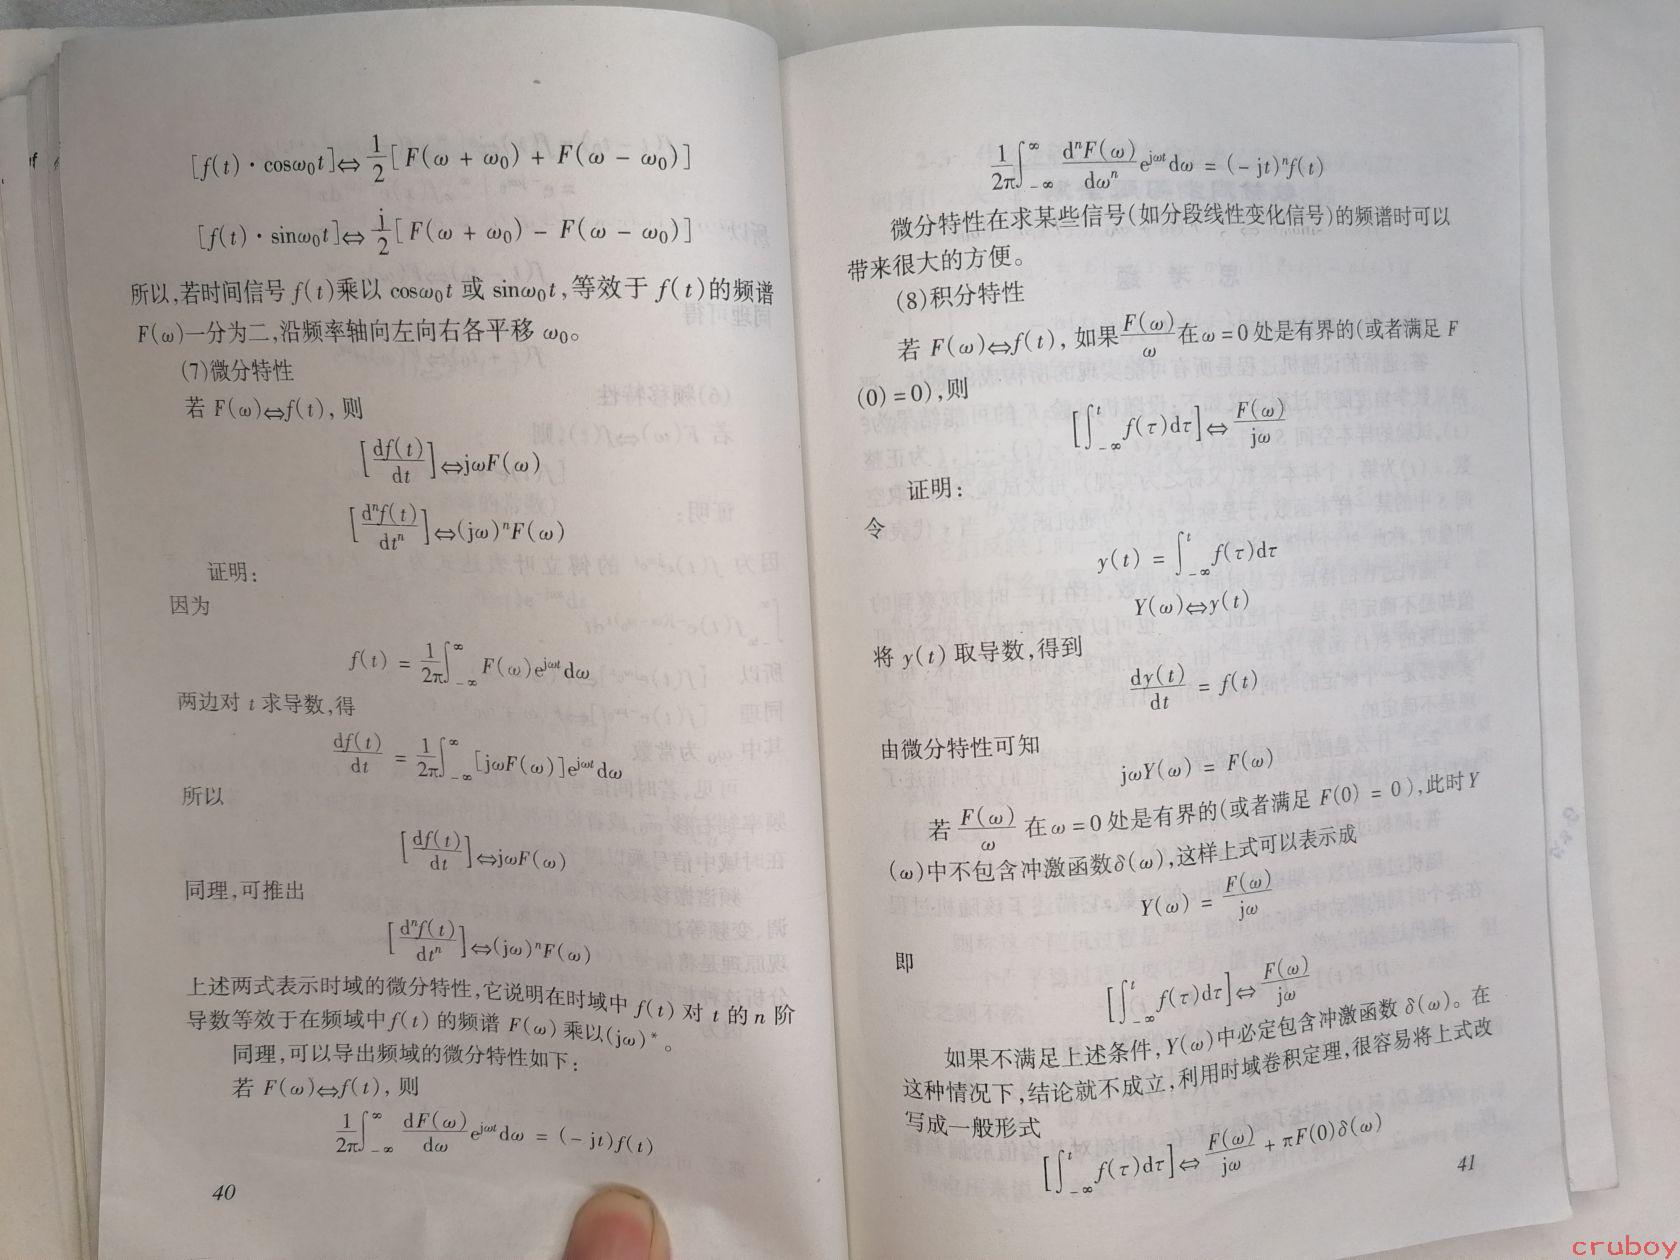 [f(t)·cosω₀t]⇔1/2[F(ω + ω₀) + F(ω − ω₀)]
[f(t)·sinω₀t]⇔j/2[F(ω + ω₀) − F(ω − ω₀)]
所以,若时间信号 f(t)乘以 cosω₀t 或 sinω₀t,等效于 f(t)的频谱
F(ω)一分为二,沿频率轴向左向右各平移 ω₀。
(7)微分特性
若 F(ω)⇔f(t), 则
[df(t)/dt]⇔jωF(ω)
[dⁿf(t)/dtⁿ]⇔(jω)ⁿF(ω)
证明:
因为
f(t) = 1/2π ∫_{-∞}^{∞} F(ω)e^{jωt}dω
两边对 t 求导数,得
df(t)/dt = 1/2π ∫_{-∞}^{∞} [jωF(ω)]e^{jωt}dω
所以
[df(t)/dt]⇔jωF(ω)
同理,可推出
[dⁿf(t)/dtⁿ]⇔(jω)ⁿF(ω)
上述两式表示时域的微分特性,它说明在时域中 f(t) 对 t 的 n 阶
导数等效于在频域中f(t) 的频谱 F(ω) 乘以(jω)*。
同理,可以导出频域的微分特性如下:
若 F(ω)⇔f(t), 则
1/2π ∫_{-∞}^{∞} dF(ω)/dω e^{jωt}dω = (−jt)f(t)
40
1/2π ∫_{-∞}^{∞} dⁿF(ω)/dωⁿ e^{jωt}dω = (−jt)ⁿf(t)
微分特性在求某些信号(如分段线性变化信号)的频谱时可以
带来很大的方便。
(8)积分特性
若 F(ω)⇔f(t), 如果F(ω)/ω在ω=0处是有界的(或者满足 F
(0)=0),则
[∫_{-∞}^{t} f(τ)dτ]⇔F(ω)/jω
证明:
令
y(t) = ∫_{-∞}^{t} f(τ)dτ
Y(ω)⇔y(t)
将 y(t) 取导数,得到
dy(t)/dt = f(t)
由微分特性可知
jωY(ω) = F(ω)
若 F(ω)/ω 在ω=0处是有界的(或者满足 F(0) = 0),此时Y
(ω)中不包含冲激函数δ(ω),这样上式可以表示成
Y(ω) = F(ω)/jω
即
[∫_{-∞}^{t} f(τ)dτ]⇔F(ω)/jω
如果不满足上述条件,Y(ω)中必定包含冲激函数 δ(ω)。在
这种情况下,结论就不成立,利用时域卷积定理,很容易将上式改
写成一般形式
[∫_{-∞}^{t} f(τ)dτ]⇔F(ω)/jω + πF(0)δ(ω)
41
cruboy